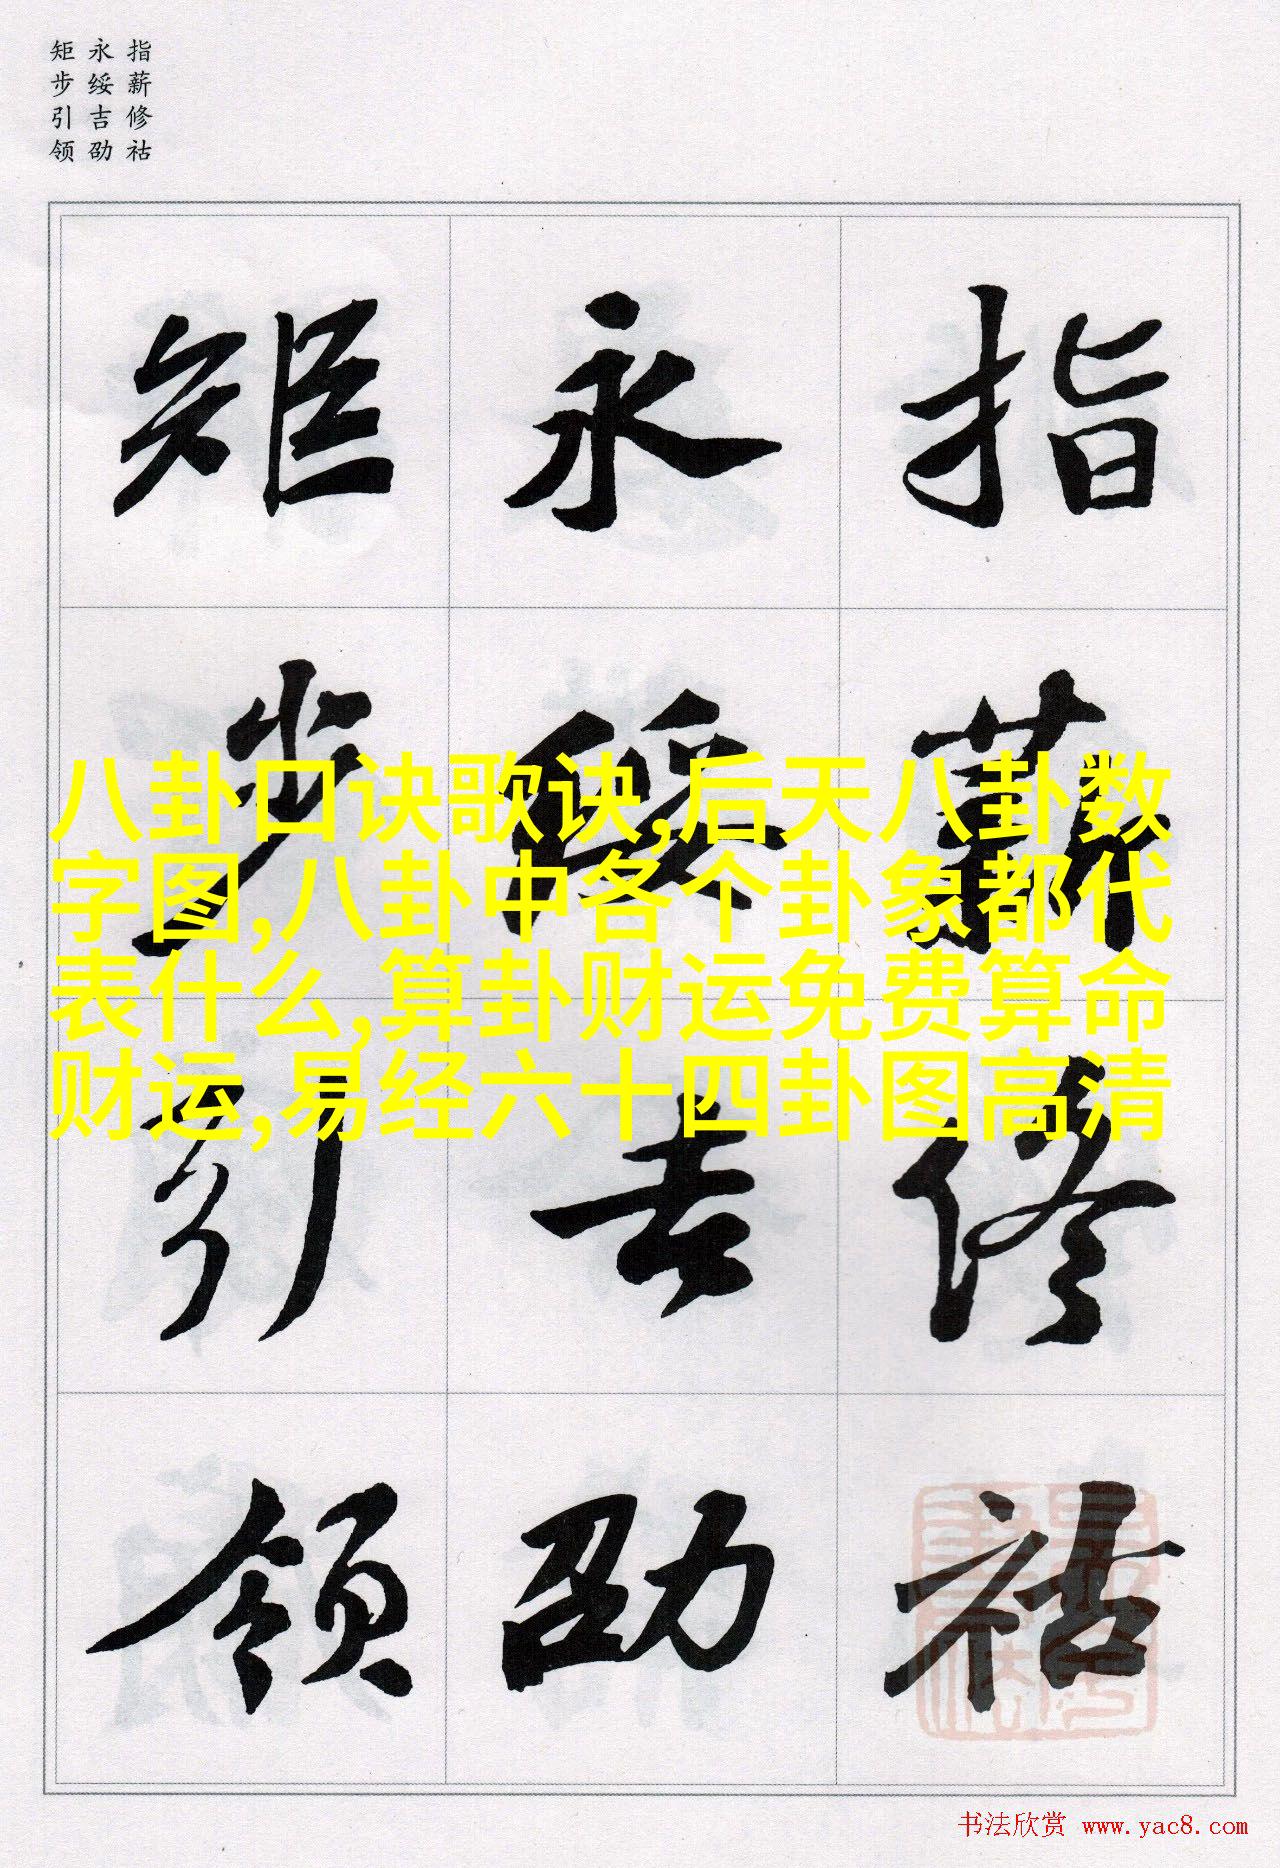 指薪修祜
永绥吉劭
矩步引领
指薪修祜
永绥吉劭
矩步引领
八卦口诀歌诀,后天八卦数
字图,八卦中各个卦象都代
表什么,算卦财运免费算命
财运,易经六十四卦图高清
书法欣赏 www.yac8.com